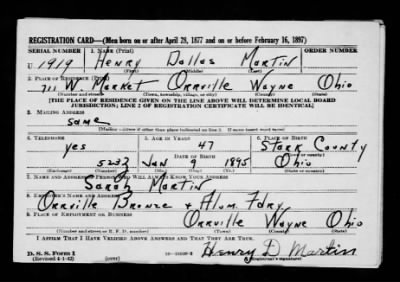 REGISTRATION CARD—(Men born on or after April 28, 1877 and on or before February 16, 1897)
SERIAL NUMBER 1. NAME (Print) ORDER NUMBER
U 1919 Henry Dallas Martin
(First) (Middle) (Last)
2. PLACE OF RESIDENCE (Print)
711 W. Market Orrville Wayne Ohio
(Number and street) (Town, township, village, or city) (County) (State)
[THE PLACE OF RESIDENCE GIVEN ON THE LINE ABOVE WILL DETERMINE LOCAL BOARD
JURISDICTION; LINE 2 OF REGISTRATION CERTIFICATE WILL BE IDENTICAL]
3. MAILING ADDRESS
same
(Mailing address if other than place indicated on line 2. If same insert word same)
4. TELEPHONE 5. AGE IN YEARS 6. PLACE OF BIRTH
yes 47 Stark County
DATE OF BIRTH
523J Jan 9 1895 Ohio
(Exchange) (Number) (Mo.) (Day) (Yr.) (State or country)
7. NAME AND ADDRESS OF PERSON WHO WILL ALWAYS KNOW YOUR ADDRESS
Sarah Martin
8. EMPLOYER'S NAME AND ADDRESS
Orrville Bronze + Alum. Fdry.
9. PLACE OF EMPLOYMENT OR BUSINESS
Orrville Wayne Ohio
(Number and street or R. F. D. number) (Town) (County) (State)
I AFFIRM THAT I HAVE VERIFIED ABOVE ANSWERS AND THAT THEY ARE TRUE.
D. S. S. Form 1
(Revised 4-1-42) (over)
Henry D Martin
(Registrant's signature)